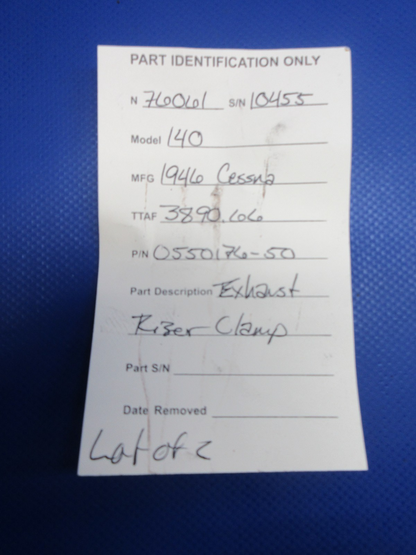 PART IDENTIFICATION ONLY
N 76061 S/N 10455
Model 140
MFG 1946 Cessna
TTAF 3890.66
P/N 0550176-50
Part Description Exhaust
Rizer Clamp
Part S/N
Date Removed
Lot of 2